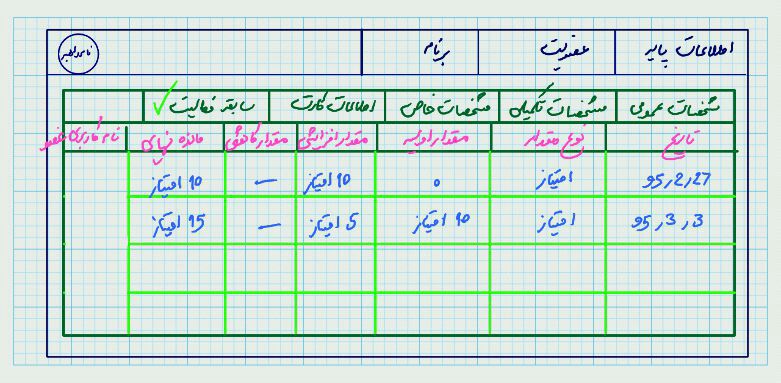 اطلاعات پایه عضویت برنامه
مشخصات عمومی مشخصات تکمیلی مشخصات خاص اطلاعات کارت سابقه فعالیت ✓
تاریخ نوع مقدار مقدار اولیه مقدار افزایشی مقدار کاهشی مانده نهایی نام کاربری
95,2,27 امتیاز 0 10 امتیاز — 10 امتیاز
95,3,3 امتیاز 10 امتیاز 5 امتیاز — 15 امتیاز